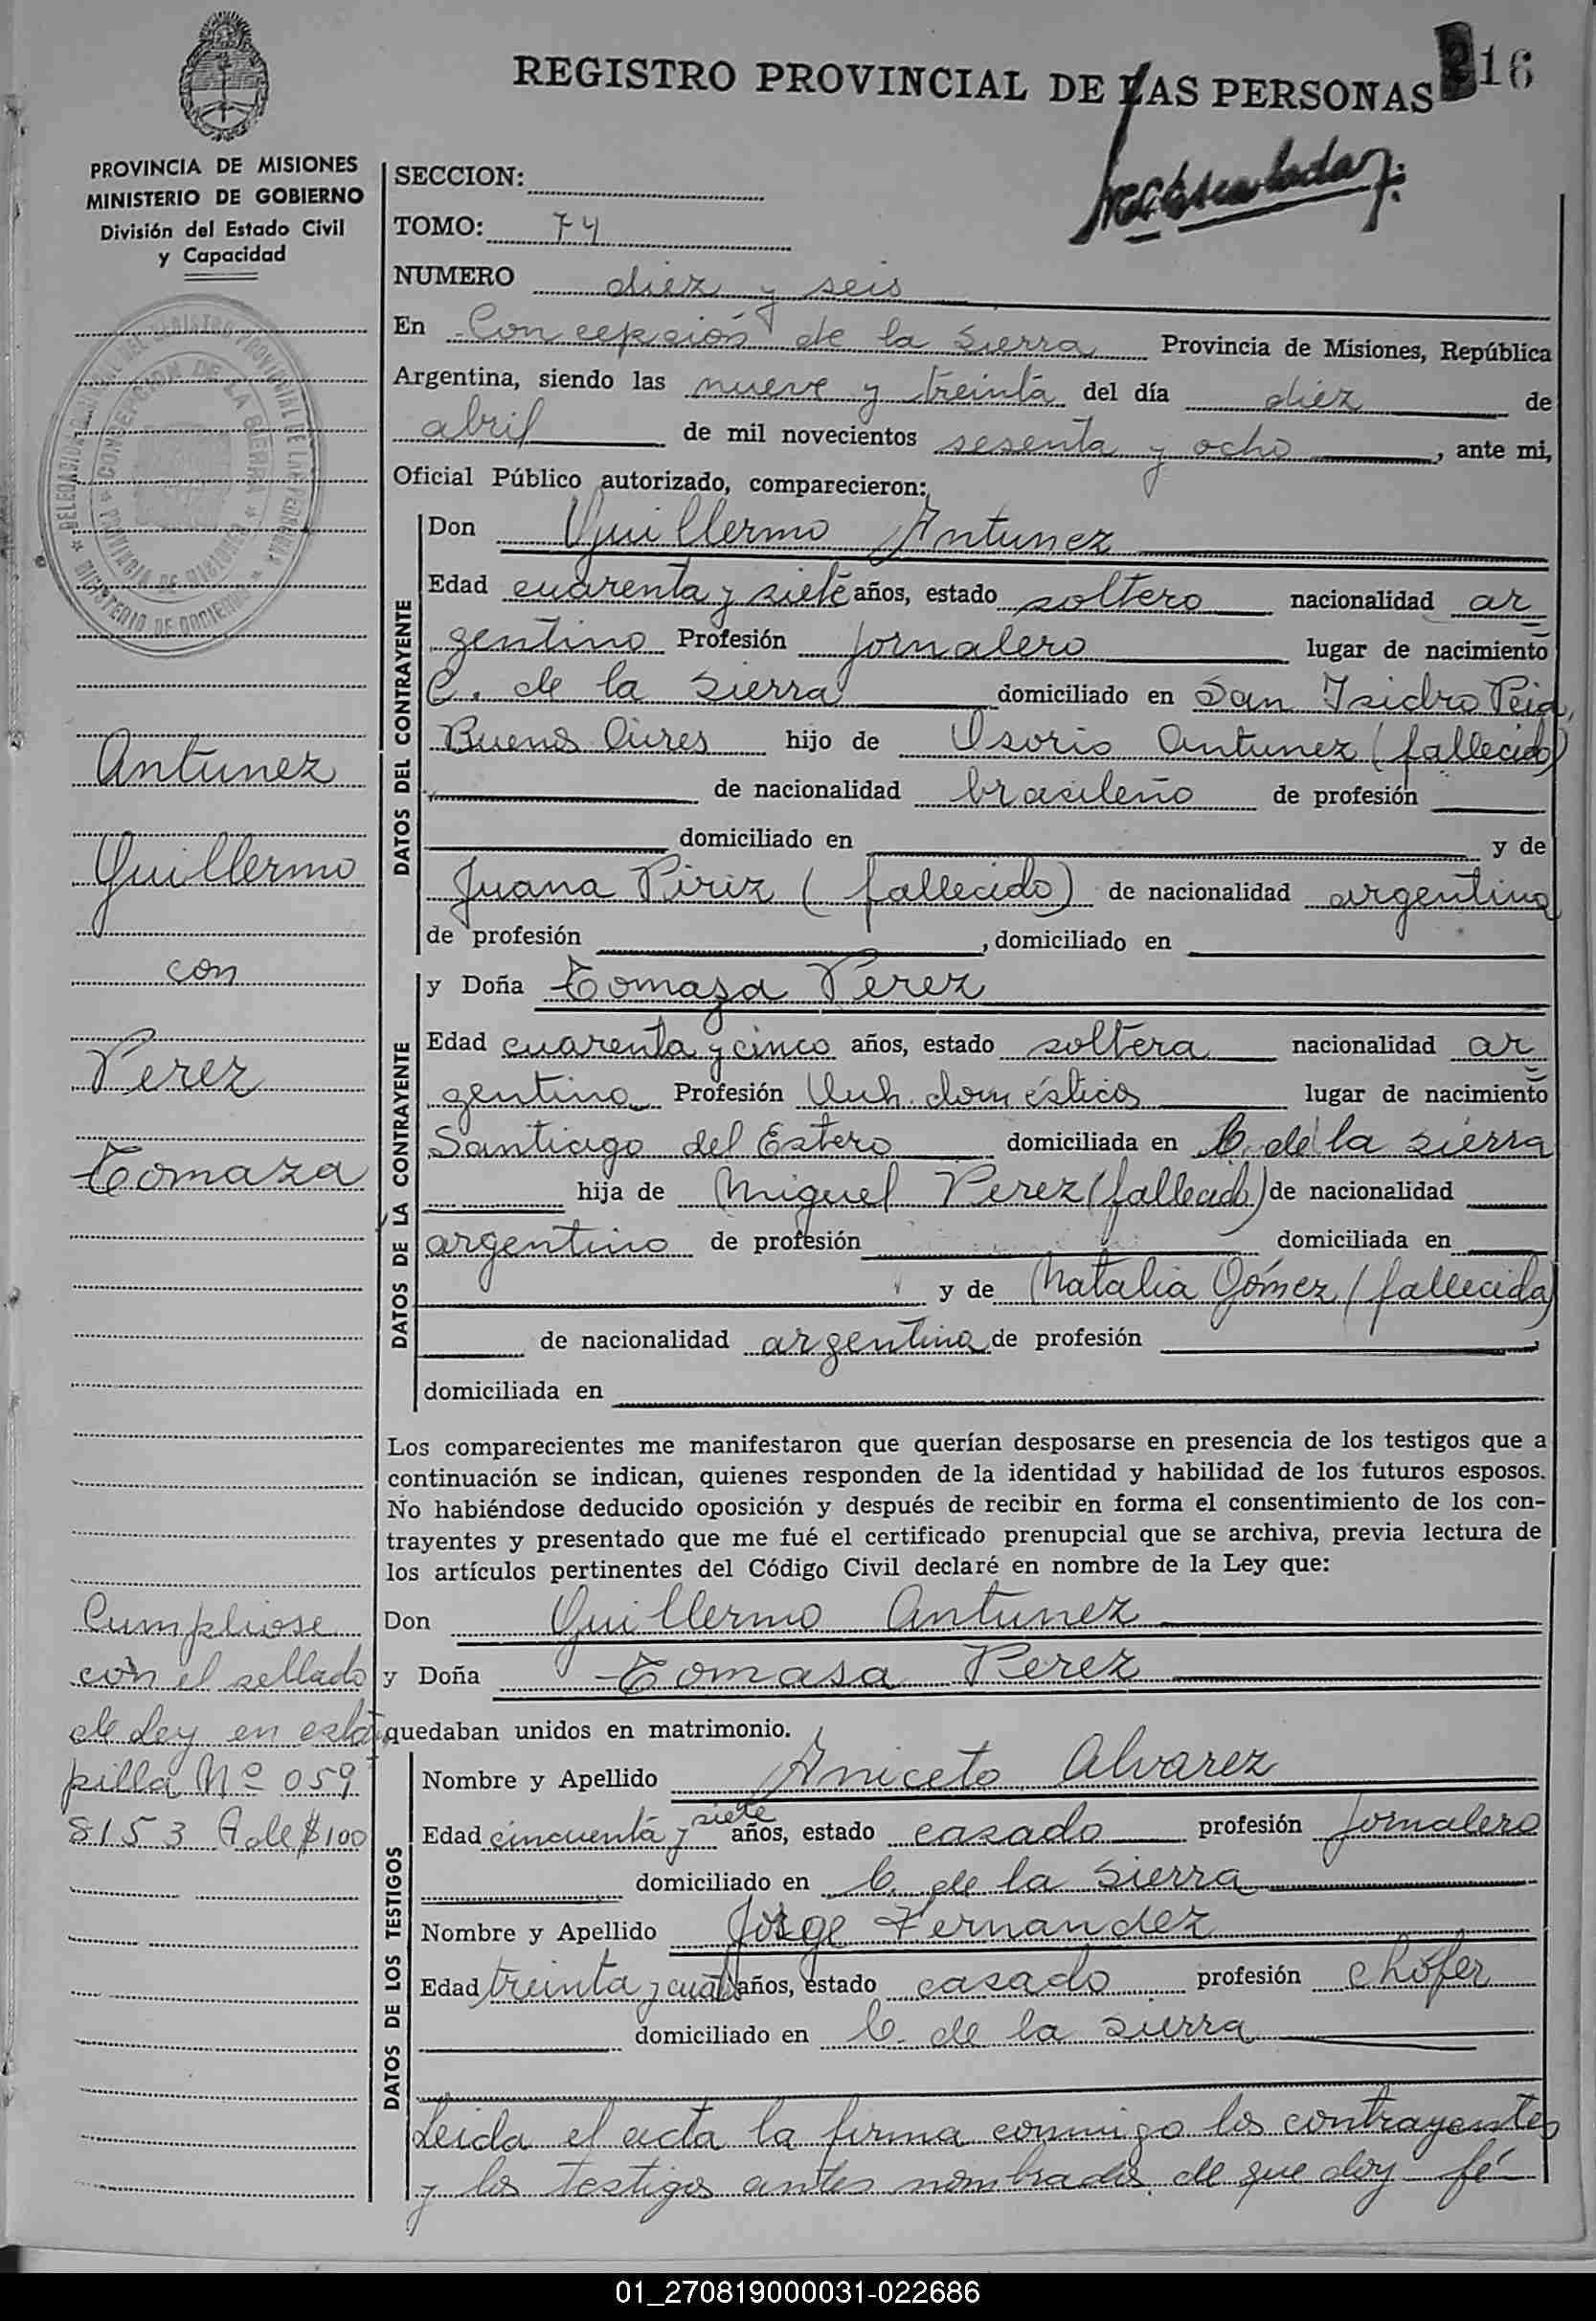 REGISTRO PROVINCIAL DE LAS PERSONAS
16
PROVINCIA DE MISIONES
MINISTERIO DE GOBIERNO
División del Estado Civil
y Capacidad
SECCION:
TOMO: 74
NUMERO diez y seis
En Concepción de la Sierra Provincia de Misiones, República
Argentina, siendo las nueve y treinta del día diez de
abril de mil novecientos sesenta y ocho, ante mi,
Oficial Público autorizado, comparecieron:
DATOS DEL CONTRAYENTE
Don Guillermo Antunez
Edad cuarenta y siete años, estado soltero nacionalidad ar
gentino Profesión jornalero lugar de nacimiento
C. de la Sierra domiciliado en San Isidro Pcia,
Buenos Aires hijo de Osorio Antunez (fallecido)
de nacionalidad brasileño de profesión
domiciliado en y de
Juana Piriz (fallecido) de nacionalidad argentina
de profesión , domiciliado en
DATOS DE LA CONTRAYENTE
y Doña Tomaza Perez
Edad cuarenta y cinco años, estado soltera nacionalidad ar
gentina Profesión domésticos lugar de nacimiento
Santiago del Estero domiciliada en C. de la Sierra
hija de Miguel Perez (fallecido) de nacionalidad
argentino de profesión domiciliada en
y de Natalia Gómez (fallecida)
de nacionalidad argentina de profesión
domiciliada en
Los comparecientes me manifestaron que querían desposarse en presencia de los testigos que a
continuación se indican, quienes responden de la identidad y habilidad de los futuros esposos.
No habiéndose deducido oposición y después de recibir en forma el consentimiento de los con-
trayentes y presentado que me fué el certificado prenupcial que se archiva, previa lectura de
los artículos pertinentes del Código Civil declaré en nombre de la Ley que:
Don Guillermo Antunez
y Doña Tomasa Perez
quedaban unidos en matrimonio.
DATOS DE LOS TESTIGOS
Nombre y Apellido Aniceto Alvarez
Edad cincuenta y siete años, estado casado profesión Jornalero
domiciliado en C. de la Sierra
Nombre y Apellido Jorge Fernandez
Edad treinta y cuatro años, estado casado profesión chófer
domiciliado en C. de la Sierra
Leida el acta la firma conmigo los contrayentes
y los testigos antes nombrados, de que doy fé
Antunez
Guillermo
con
Perez
Tomaza
Cumpliose
con el sellado
de ley en estam
pilla Nº 059
8153 A de $100
DELEGACION DEL REGISTRO PROVINCIAL DE LAS PERSONAS
CONCEPCION DE LA SIERRA
PROVINCIA DE MISIONES
MINISTERIO DE GOBIERNO
01_270819000031-022686